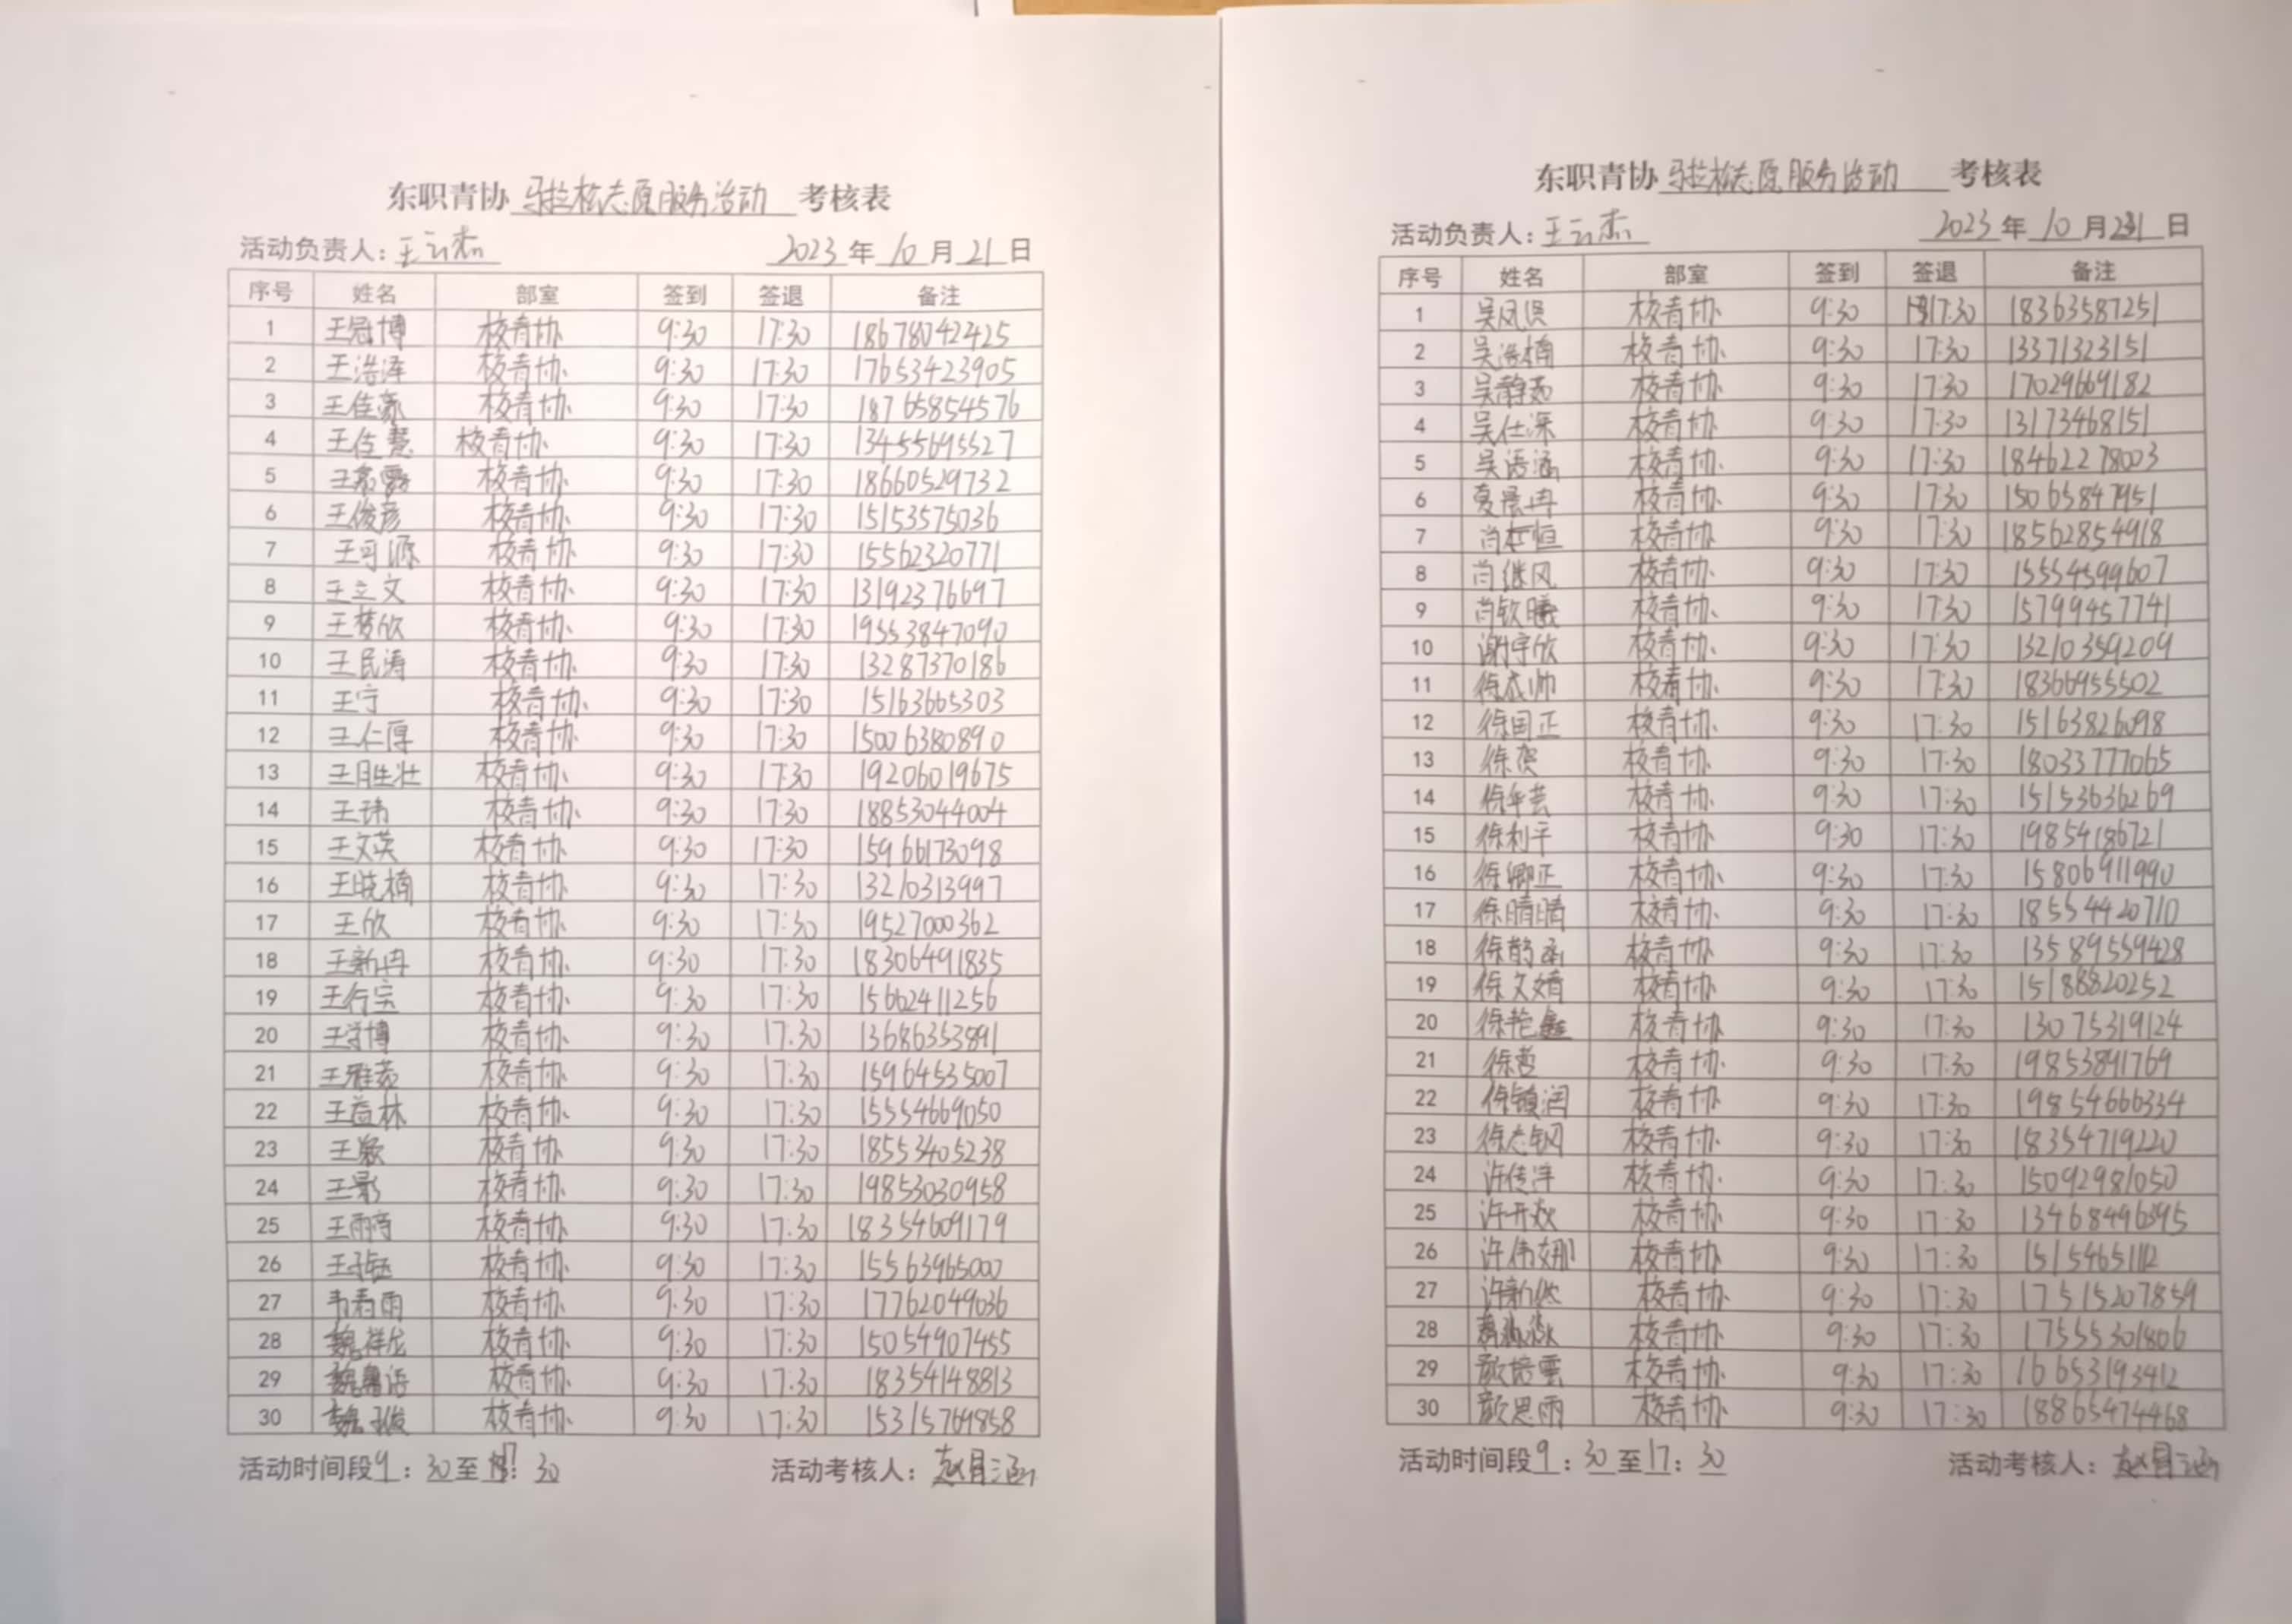 东职青协 马拉松志愿服务活动 考核表
活动负责人：王云杰 2023 年 10 月 21 日
序号 姓名 部室 签到 签退 备注
1 王冠博 校青协 9:30 17:30 18678042425
2 王浩泽 校青协 9:30 17:30 17653423905
3 王佳豪 校青协 9:30 17:30 18765854576
4 王佳慧 校青协 9:30 17:30 13455695527
5 王 校青协 9:30 17:30 18660529732
6 王俊彦 校青协 9:30 17:30 15153575036
7 王可源 校青协 9:30 17:30 15562320771
8 王立文 校青协 9:30 17:30 13192376697
9 王梦欣 校青协 9:30 17:30 19553847090
10 王民涛 校青协 9:30 17:30 13287370186
11 王宁 校青协 9:30 17:30 15163665303
12 王仁厚 校青协 9:30 17:30 15006380890
13 王胜壮 校青协 9:30 17:30 19206019675
14 王玮 校青协 9:30 17:30 18853044004
15 王文英 校青协 9:30 17:30 15966173098
16 王晓楠 校青协 9:30 17:30 13210313997
17 王欣 校青协 9:30 17:30 19527000362
18 王新冉 校青协 9:30 17:30 18306491835
19 王行宝 校青协 9:30 17:30 15662411256
20 王学博 校青协 9:30 17:30 13686353891
21 王雅茹 校青协 9:30 17:30 15964535007
22 王益林 校青协 9:30 17:30 15554669050
23 王 校青协 9:30 17:30 18553405238
24 王影 校青协 9:30 17:30 19853030958
25 王雨奇 校青协 9:30 17:30 18354609179
26 王 校青协 9:30 17:30 15563965000
27 韦春雨 校青协 9:30 17:30 17762049036
28 魏祥龙 校青协 9:30 17:30 15054907455
29 魏 校青协 9:30 17:30 18354148813
30 魏子俊 校青协 9:30 17:30 15315769858
活动时间段 9：30 至 17：30 活动考核人：赵
东职青协 马拉松志愿服务活动 考核表
活动负责人：王云杰 2023 年 10 月 21 日
序号 姓名 部室 签到 签退 备注
1 吴凤 校青协 9:30 17:30 18363587251
2 吴浩楠 校青协 9:30 17:30 13371323151
3 吴静茹 校青协 9:30 17:30 17029669182
4 吴仕深 校青协 9:30 17:30 13173468151
5 吴语涵 校青协 9:30 17:30 18462278003
6 夏晨冉 校青协 9:30 17:30 15065847951
7 肖恒 校青协 9:30 17:30 18562854918
8 肖继风 校青协 9:30 17:30 15554599607
9 肖钦曦 校青协 9:30 17:30 15799457741
10 谢宇欣 校青协 9:30 17:30 13210359209
11 徐成帅 校青协 9:30 17:30 18366955502
12 徐国正 校青协 9:30 17:30 15163826098
13 徐贺 校青协 9:30 17:30 18033777065
14 徐芸 校青协 9:30 17:30 15153636269
15 徐利平 校青协 9:30 17:30 19854186721
16 徐卿正 校青协 9:30 17:30 15806911990
17 徐晴晴 校青协 9:30 17:30 18554420710
18 徐函 校青协 9:30 17:30 13589559428
19 徐文婧 校青协 9:30 17:30 15188820252
20 徐艳鑫 校青协 9:30 17:30 13075319124
21 徐 校青协 9:30 17:30 19853891769
22 徐镇润 校青协 9:30 17:30 19854666334
23 徐志钢 校青协 9:30 17:30 18354719220
24 许传洋 校青协 9:30 17:30 15092981050
25 许开 校青协 9:30 17:30 13468496395
26 许伟娜 校青协 9:30 17:30 15154651112
27 许新 校青协 9:30 17:30 17515207859
28 校青协 9:30 17:30 17555301806
29 颜培雲 校青协 9:30 17:30 16653193412
30 颜思雨 校青协 9:30 17:30 18865474468
活动时间段 9：30 至 17：30 活动考核人：赵